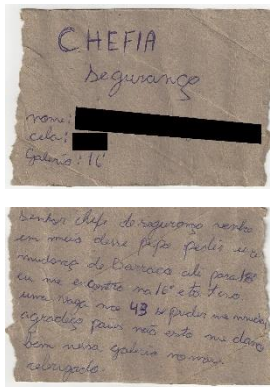 CHEFIA
segurança
nome:
cela:
Galeria: 16ª
Senhor chefe de segurança venho
em meus desse pipa pedir uma
mudança de Barraco ali para 18ª
eu me encontro na 16ª e tô tero
uma vaga no 43 se puder me mudar
agradeço pois não estô me dano
bem nessa galeria no mais
obrigado.